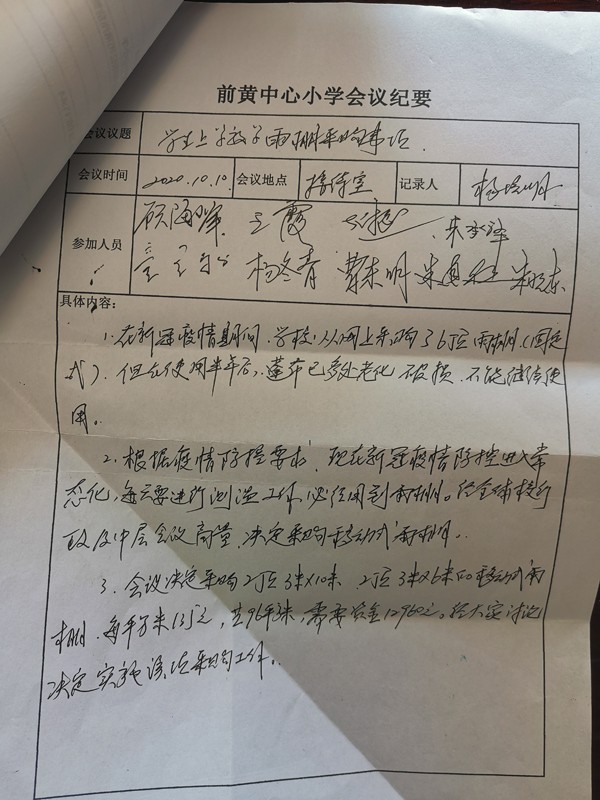 前黄中心小学会议纪要
会议议题 学生上学放学雨棚采购事项.
会议时间 2020.10.10 会议地点 接待室 记录人
参加人员 顾海峰 王霞
杨冬青 曹东明
具体内容:
1. 在新冠疫情期间, 学校从网上采购36顶雨棚(固定
式). 但在使用半年后, 蓬布已多处老化破损, 不能继续使
用。
2. 根据疫情防控要求, 现在新冠疫情防控进入常
态化, 每天要进行测温工作, 必须用到雨棚。经全体校行
政及中层会议商量, 决定采购移动式雨棚。
3. 会议决定采购2顶3米×10米, 2顶3米×6米的移动式雨
棚, 每平方米135元, 共96平米, 需要资金12960元。经大家讨论
决定实施该项采购工作。